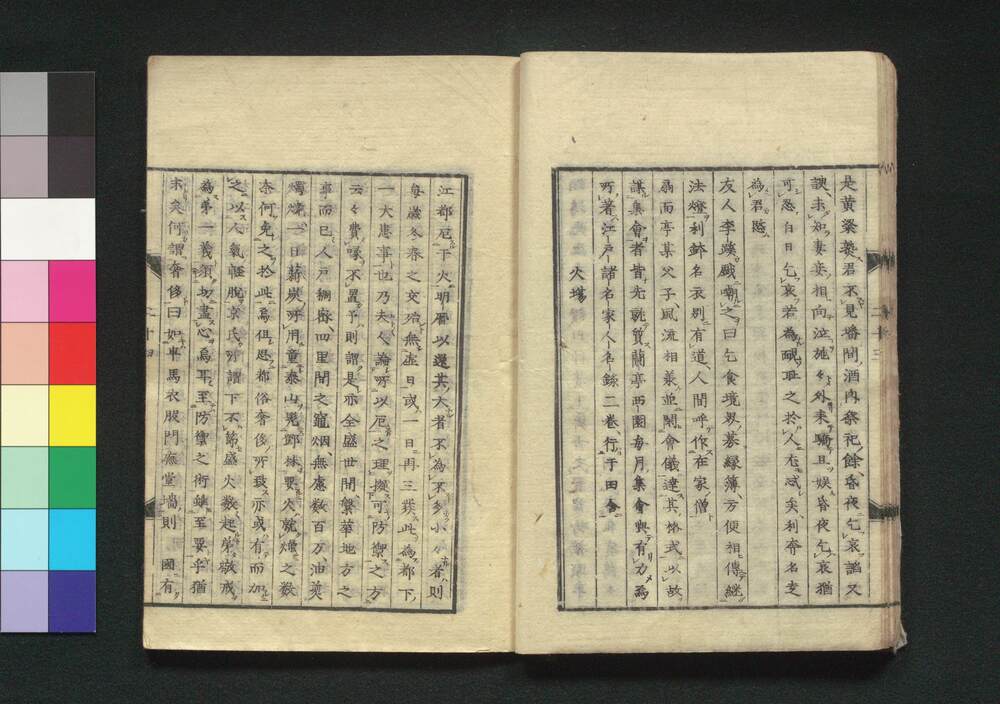 是黄粱羮君不見墦間酒肉祭祀餘昏夜乞哀謟又
諛未如妻妾相向泣施々外来驕且娯昏夜乞哀猶
可忍白日乞哀若為顔耻之於人大哉矣利奔名走
為君隨
友人李蹊戯嘲之曰乞食境界募縁簿方便相傳継
法燈利鉢名衣別有道人間呼作在家僧
扇面亭某父子風流相兼並閑會儀達其格式以故
謀集會者皆先就質蘭亭西園毎月集會與有力焉
所著江戸諸名家人名録二巻行于田舎
火塲
二十三
江都厄于火明暦以還其大者不為不多小火者則
毎歳冬春之交殆無虚日或一日再三發此為都下
一大患事也乃夫人論所以厄之理擬可防禦之方
云々費喙不置予則謂是亦全盛世間繁華地方之
事而已人戸稠密四里間之竈烟無慮数百万油炎
燭燒一日薪炭所用童泰山兀鄧林要火就燥之数
奈何免之於此焉但恐都俗奢侈所致亦或有而加
之以人氣輕脱京氏所謂下不節盛火数起弟敬戒
為第一義須切盡心焉耳至防禦之術雖至要乎猶
末矣何謂奢侈曰如車馬衣服門廡堂墻則國有
二十四